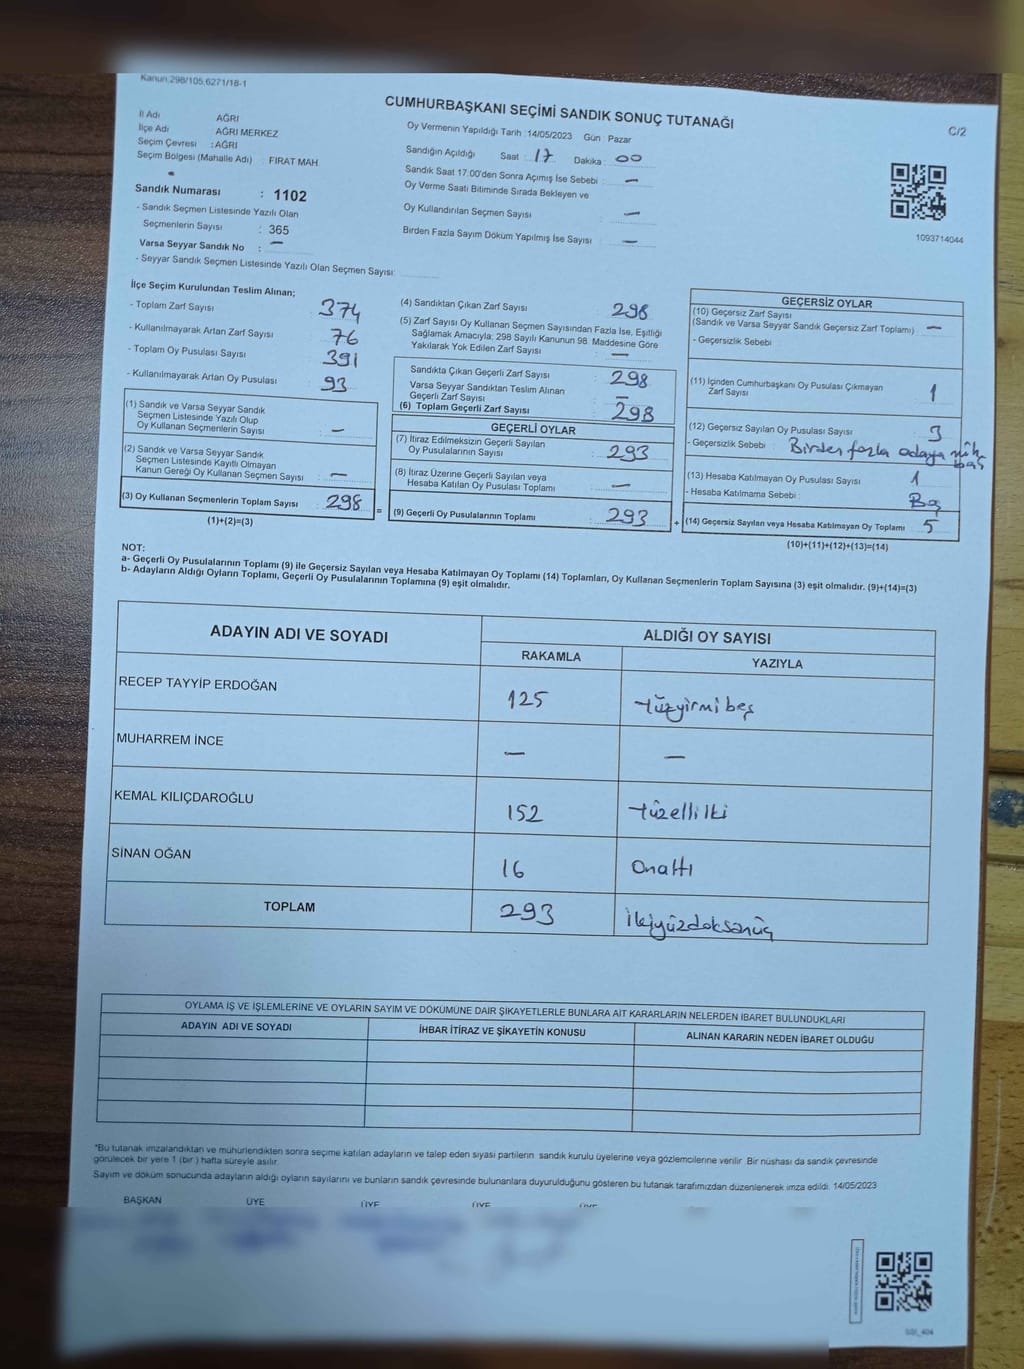 Kanun:298/105,6271/18-1
CUMHURBAŞKANI SEÇİMİ SANDIK SONUÇ TUTANAĞI
C/2
İl Adı : AĞRI
İlçe Adı : AĞRI MERKEZ
Seçim Çevresi : AĞRI
Seçim Bölgesi (Mahalle Adı) : FIRAT MAH.
Sandık Numarası : 1102
- Sandık Seçmen Listesinde Yazılı Olan
Seçmenlerin Sayısı : 365
Varsa Seyyar Sandık No : —
- Seyyar Sandık Seçmen Listesinde Yazılı Olan Seçmen Sayısı:
Oy Vermenin Yapıldığı Tarih : 14/05/2023 Gün : Pazar
Sandığın Açıldığı Saat : 17 Dakika : 00
Sandık Saat 17.00'den Sonra Açımış İse Sebebi : —
Oy Verme Saati Bitiminde Sırada Bekleyen ve
Oy Kullandırılan Seçmen Sayısı : —
Birden Fazla Sayım Döküm Yapılmış İse Sayısı : —
1093714044
İlçe Seçim Kurulundan Teslim Alınan;
- Toplam Zarf Sayısı : 374
- Kullanılmayarak Artan Zarf Sayısı : 76
- Toplam Oy Pusulası Sayısı : 391
- Kullanılmayarak Artan Oy Pusulası : 93
(1) Sandık ve Varsa Seyyar Sandık
Seçmen Listesinde Yazılı Olup
Oy Kullanan Seçmenlerin Sayısı : —
(2) Sandık ve Varsa Seyyar Sandık
Seçmen Listesinde Kayıtlı Olmayan
Kanun Gereği Oy Kullanan Seçmen Sayısı : —
(3) Oy Kullanan Seçmenlerin Toplam Sayısı : 298
(1)+(2)=(3)
=
(4) Sandıktan Çıkan Zarf Sayısı : 298
(5) Zarf Sayısı Oy Kullanan Seçmen Sayısından Fazla İse, Eşitliği
Sağlamak Amacıyla; 298 Sayılı Kanunun 98. Maddesine Göre
Yakılarak Yok Edilen Zarf Sayısı : —
Sandıkta Çıkan Geçerli Zarf Sayısı : 298
Varsa Seyyar Sandıktan Teslim Alınan
Geçerli Zarf Sayısı : —
(6) Toplam Geçerli Zarf Sayısı : 298
GEÇERLİ OYLAR
(7) İtiraz Edilmeksizin Geçerli Sayılan
Oy Pusulalarının Sayısı : 293
(8) İtiraz Üzerine Geçerli Sayılan veya
Hesaba Katılan Oy Pusulası Toplamı : —
(9) Geçerli Oy Pusulalarının Toplamı : 293
+
GEÇERSİZ OYLAR
(10) Geçersiz Zarf Sayısı
(Sandık ve Varsa Seyyar Sandık Geçersiz Zarf Toplamı) : —
- Geçersizlik Sebebi :
(11) İçinden Cumhurbaşkanı Oy Pusulası Çıkmayan
Zarf Sayısı : 1
(12) Geçersiz Sayılan Oy Pusulası Sayısı : 3
- Geçersizlik Sebebi : Birden fazla adaya
(13) Hesaba Katılmayan Oy Pusulası Sayısı : 1
- Hesaba Katılmama Sebebi :
(14) Geçersiz Sayılan veya Hesaba Katılmayan Oy Toplamı : 5
(10)+(11)+(12)+(13)=(14)
NOT:
a- Geçerli Oy Pusulalarının Toplamı (9) ile Geçersiz Sayılan veya Hesaba Katılmayan Oy Toplamı (14) Toplamları, Oy Kullanan Seçmenlerin Toplam Sayısına (3) eşit olmalıdır. (9)+(14)=(3)
b- Adayların Aldığı Oyların Toplamı, Geçerli Oy Pusulalarının Toplamına (9) eşit olmalıdır.
ADAYIN ADI VE SOYADI ALDIĞI OY SAYISI
RAKAMLA YAZIYLA
RECEP TAYYİP ERDOĞAN 125 Yüzyirmi beş
MUHARREM İNCE — —
KEMAL KILIÇDAROĞLU 152 Yüzelli iki
SİNAN OĞAN 16 Onaltı
TOPLAM 293 ikiyüzdoksanüç
OYLAMA İŞ VE İŞLEMLERİNE VE OYLARIN SAYIM VE DÖKÜMÜNE DAİR ŞİKAYETLERLE BUNLARA AİT KARARLARIN NELERDEN İBARET BULUNDUKLARI
ADAYIN ADI VE SOYADI İHBAR İTİRAZ VE ŞİKAYETİN KONUSU ALINAN KARARIN NEDEN İBARET OLDUĞU
*Bu tutanak imzalandıktan ve mühürlendikten sonra seçime katılan adayların ve talep eden siyasi partilerin sandık kurulu üyelerine veya gözlemcilerine verilir. Bir nüshası da sandık çevresinde
görülecek bir yere 1 (bir ) hafta süreyle asılır.
Sayım ve döküm sonucunda adayların aldığı oyların sayılarını ve bunların sandık çevresinde bulunanlara duyurulduğunu gösteren bu tutanak tarafımızdan düzenlenerek imza edildi. 14/05/2023
BAŞKAN ÜYE ÜYE ÜYE ÜYE